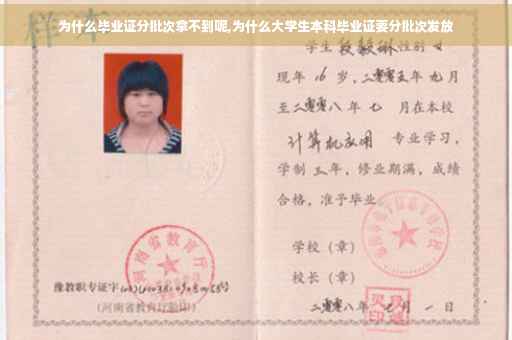 为什么毕业证分批次拿不到呢,为什么大学生本科毕业证要分批次发放
学生 性别 女
现年 16 岁，二零零五年 九月
至二零零八年 七 月在本校
计算机应用 专业学习，
学制 三年，修业期满，成绩
合格，准予毕业
学校（章）
河南省教育厅
校长（章）
豫教职专证字
(河南省教育厅验印)
二零零八年 七月 一日